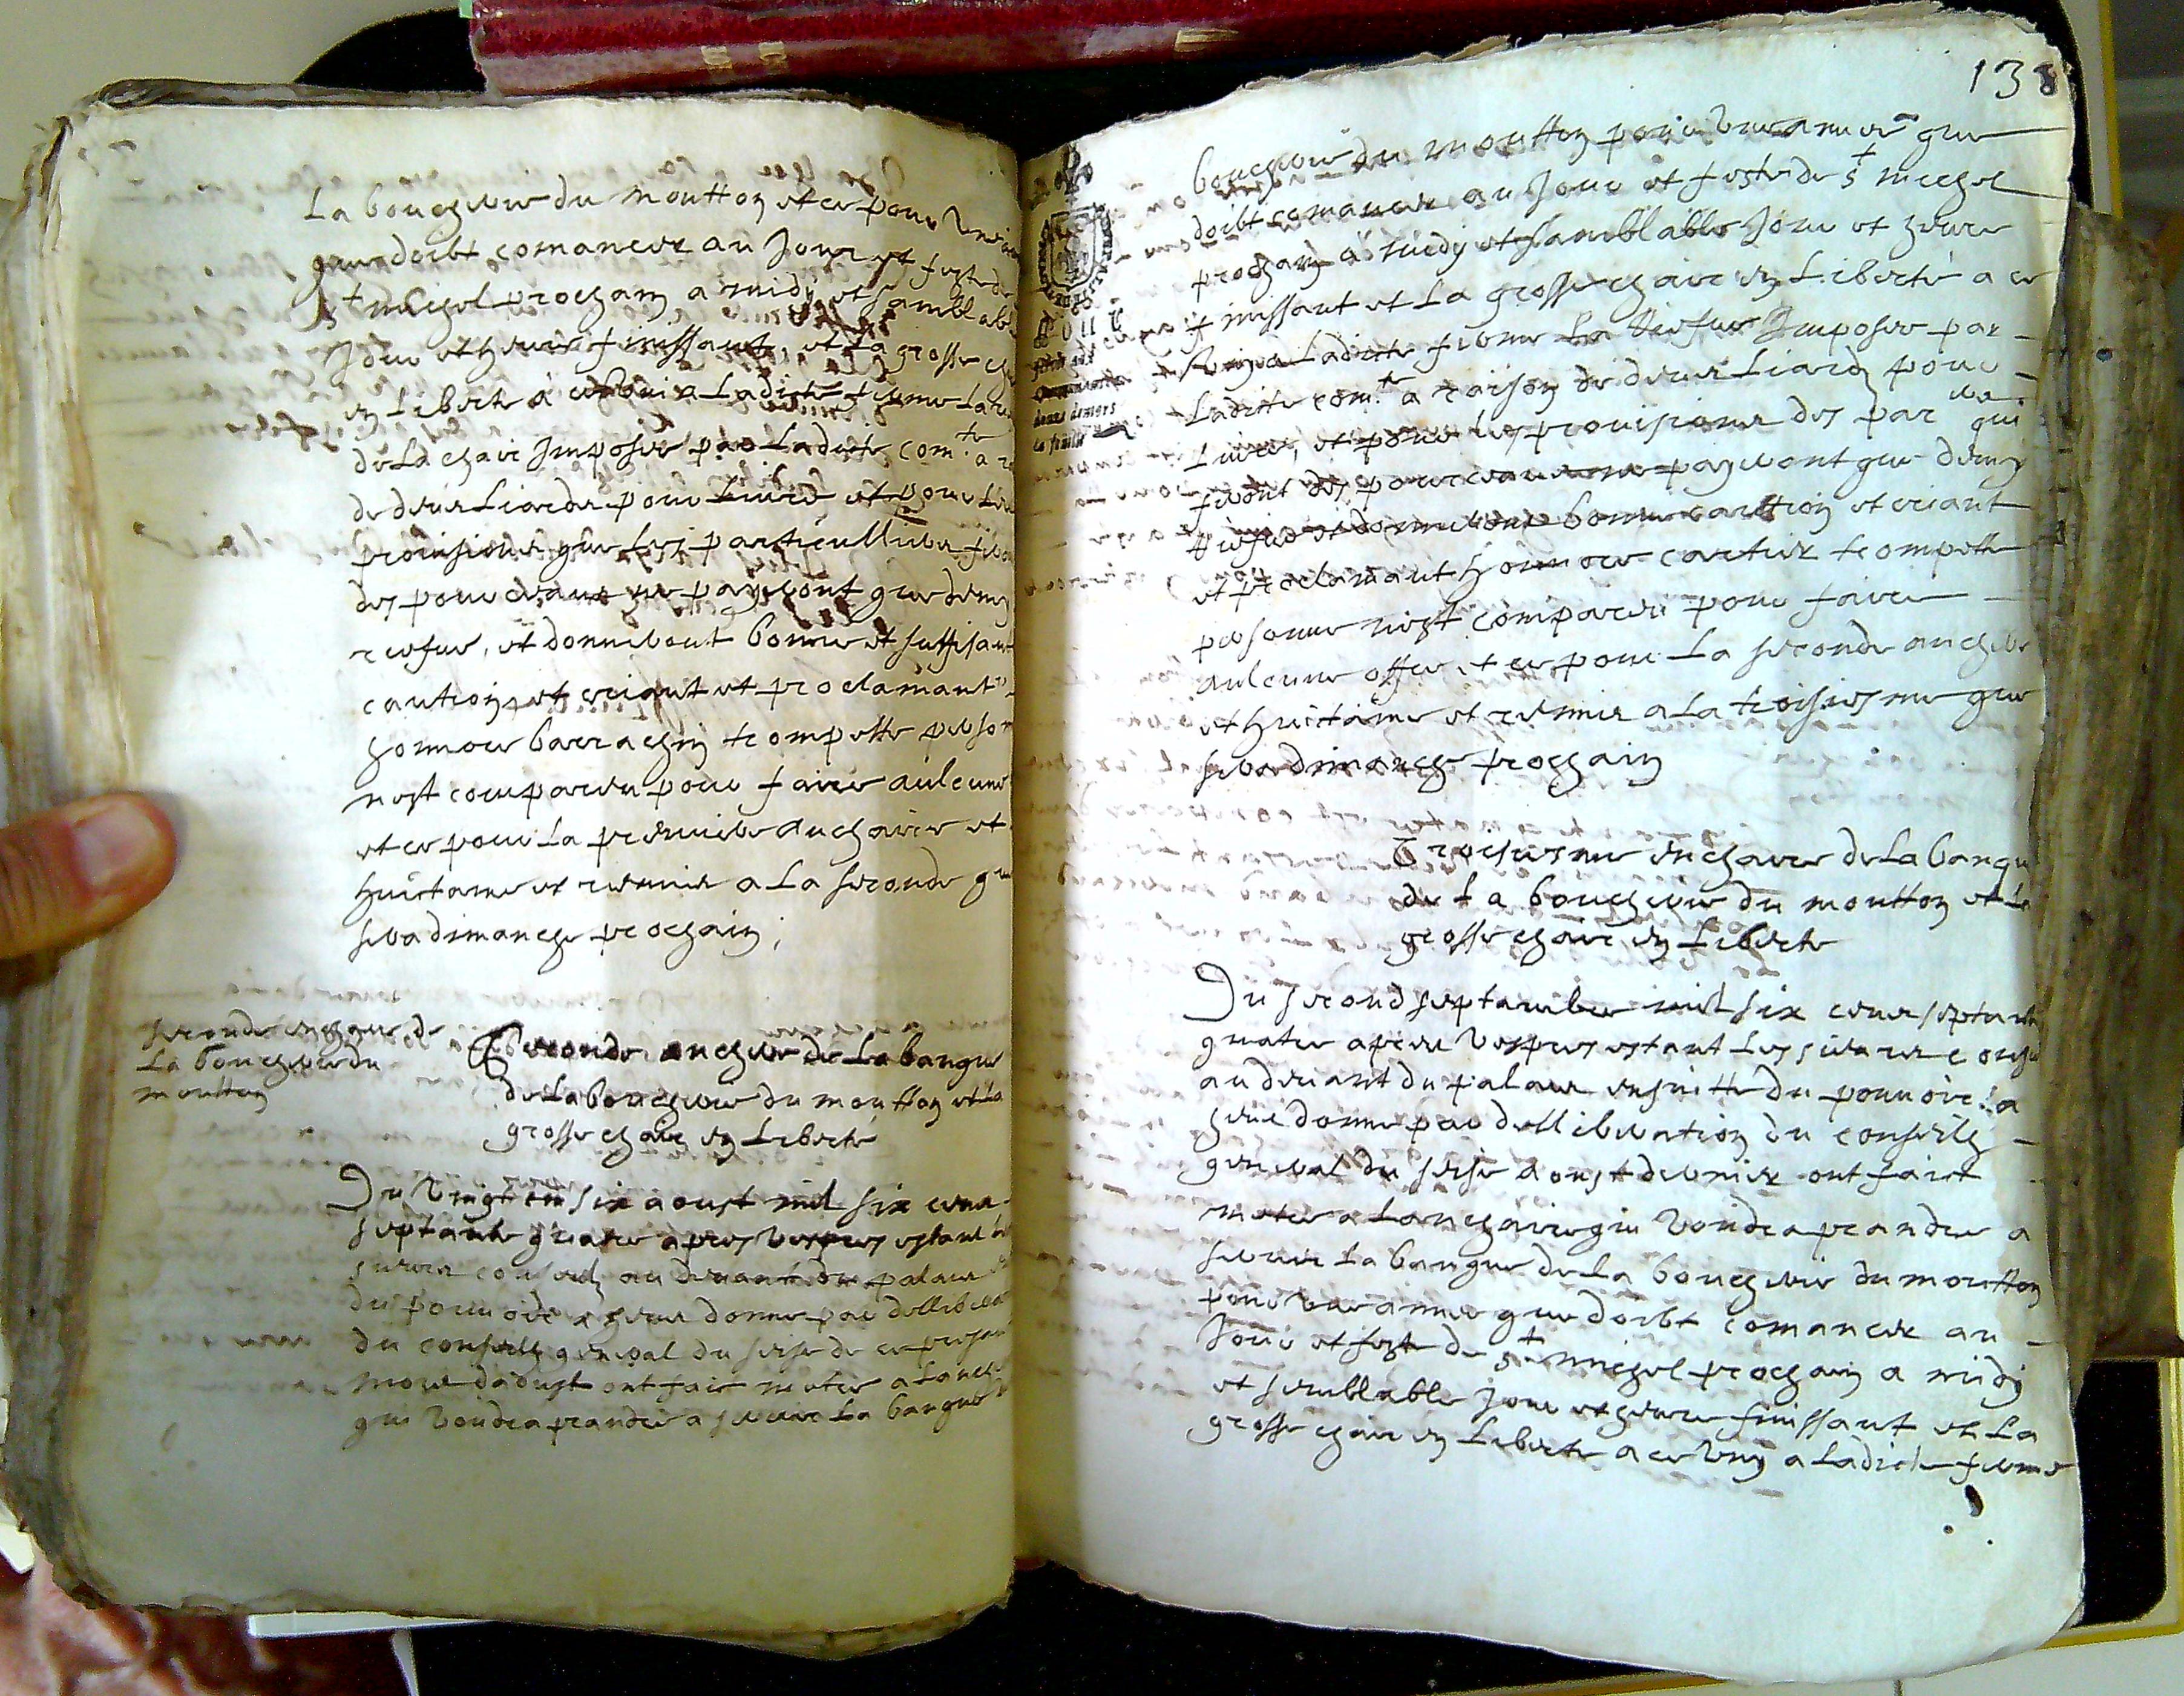 La boucherie du moutton et ce pour une
que doibt comancer au Jour et feste de
St michel prochain a midy et samblable
Jour et heure finissant, et la grosse ch
en liberte a ce uni a ladicte ferme la re
de la chair Imposee par ladicte com.te a r
de deux liardz pour livre et pour les
provisions que les particulliers fero
des pourceaux ne payeront que demy
reefve, et donneront bonne et suffisant
caution, et criant et proclamant
honnore barrachin trompette person
nest comparu pour faire aulcune
et ce pour la premiere anchaire et
huictaine et remise a la seconde que
sera dimanche prochain;
seconde enchere de
la boucherie du
moutton
Seconde anchere de la banque
de la boucherie du moutton et la
grosse chair en liberté
Du vingt six aoust mil six cens
septante quatre apres vespres estant les
sieurs consulz au devant du palais
du pouvoir a heux donne par delliberation
du conseilh general du seise de ce presant
mois daoust ont fait metre a lanch
qui voudra prandre a servir la banque
138
boucherie du moutton pour une annee que
doibt comancer au Jour et feste de St michel
prochain a midy et samblable Jour et heure
finissant et la grosse chair en liberté a ce
uny a ladicte ferme la reefve Imposee par
ladicte com.te a raison de deux liardz pour
livre, et pour les provisions des par
qui
feront des pourceaux ne payeront que demy
reefve et donneront bonne caution et criant
et proclamant honnore cartier trompette
personne nest comparu pour faire
aulcune offre, et ce pour la seconde anchere
et huictaine et remise a la troisiesme que
sera dimanche prochain
Troisiesme enchaire de la banque
de la boucherie du moutton et la
grosse chair en liberte
Du second septambre mil six cens septante
quatre apres vespres estant les sieurs consulz
au devant du palais ensuitte du pouvoir a
heux donne par delliberation du conseilh
general du seise aoust dernier ont faict
metre a lanchaire qui voudra prandre a
servir la banque de la boucherie du moutton
pour une annee que doibt comancer au
Jour et feste de St michel prochain a midy
et semblable Jour et heure finissant et la
grosse chair en liberte a ce uny a ladicte ferme